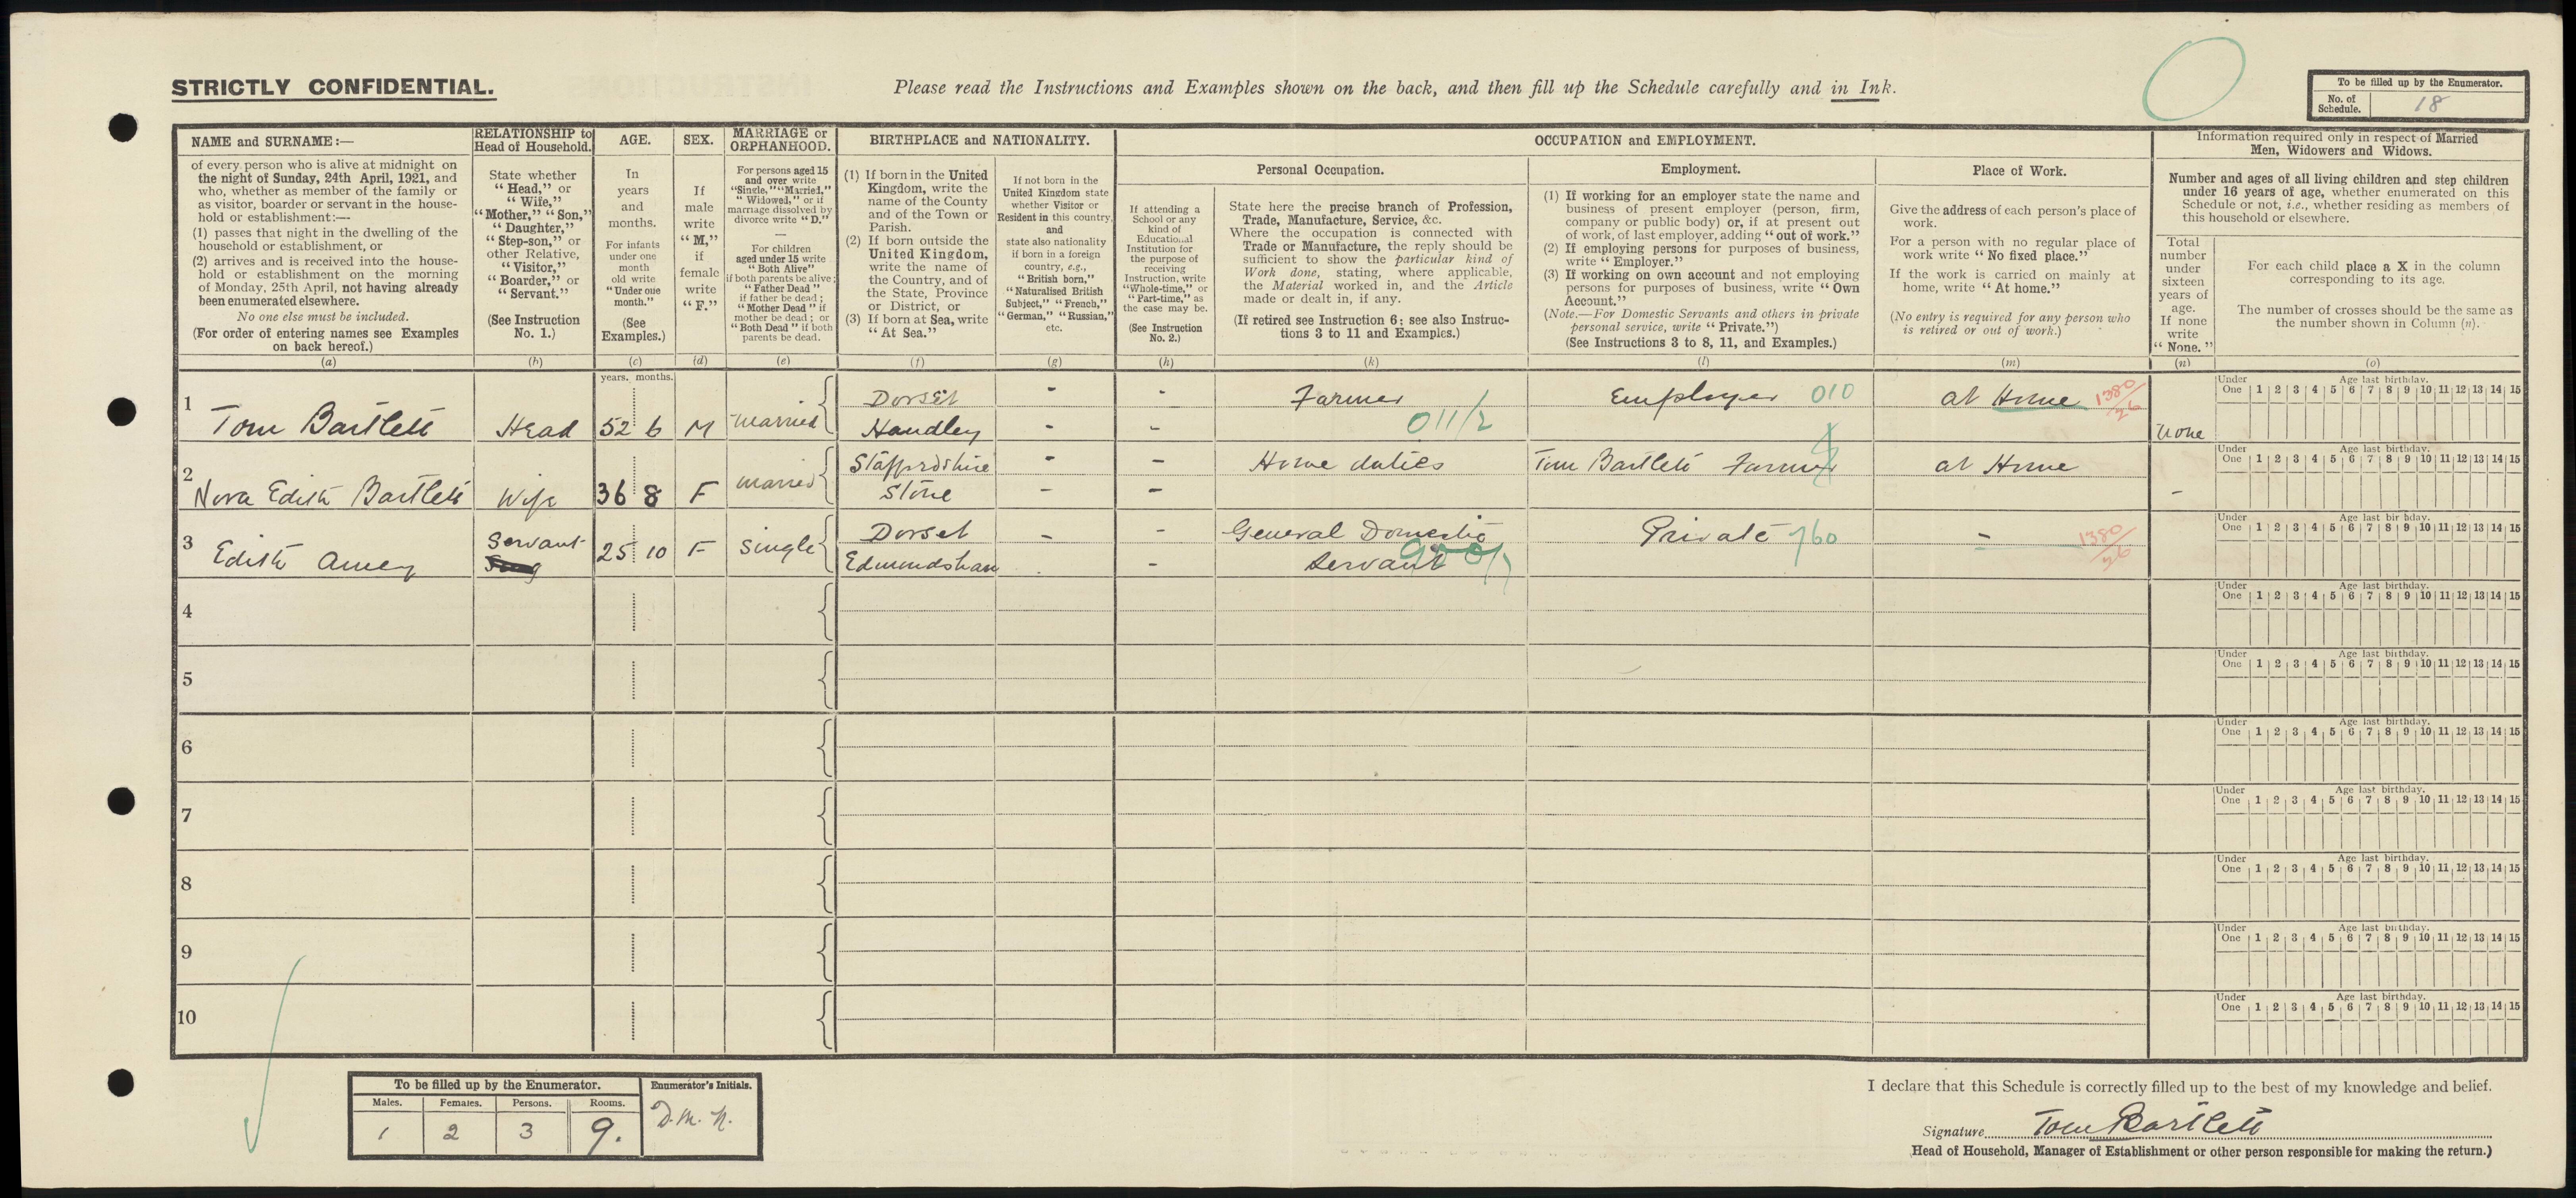 STRICTLY CONFIDENTIAL.
Please read the Instructions and Examples shown on the back, and then fill up the Schedule carefully and in Ink.
To be filled up by the Enumerator.
No. of Schedule. 18
NAME and SURNAME:—
of every person who is alive at midnight on
the night of Sunday, 24th April, 1921, and
who, whether as member of the family or
as visitor, boarder or servant in the house-
hold or establishment:—
(1) passes that night in the dwelling of the
household or establishment, or
(2) arrives and is received into the house-
hold or establishment on the morning
of Monday, 25th April, not having already
been enumerated elsewhere.
No one else must be included.
(For order of entering names see Examples
on back hereof.)
(a)
RELATIONSHIP to
Head of Household.
State whether
"Head," or
"Wife,"
"Mother," "Son,"
"Daughter,"
"Step-son," or
other Relative,
"Visitor,"
"Boarder," or
"Servant."
(See Instruction
No. 1.)
(b)
AGE.
In
years
and
months.
For infants
under one
month
old write
"Under one
month."
(See
Examples.)
(c)
SEX.
If
male
write
"M,"
if
female
write
"F."
(d)
MARRIAGE or
ORPHANHOOD.
For persons aged 15
and over write
"Single," "Married,"
"Widowed," or if
marriage dissolved by
divorce write "D."
For children
aged under 15 write
"Both Alive"
if both parents be alive;
"Father Dead"
if father be dead;
"Mother Dead" if
mother be dead; or
"Both Dead" if both
parents be dead.
(e)
BIRTHPLACE and NATIONALITY.
(1) If born in the United
Kingdom, write the
name of the County
and of the Town or
Parish.
(2) If born outside the
United Kingdom,
write the name of
the Country, and of
the State, Province
or District, or
(3) If born at Sea, write
"At Sea."
(f)
If not born in the
United Kingdom state
whether Visitor or
Resident in this country,
and
state also nationality
if born in a foreign
country, e.g.,
"British born,"
"Naturalised British
Subject," "French,"
"German," "Russian,"
etc.
(g)
OCCUPATION and EMPLOYMENT.
If attending a
School or any
kind of
Educational
Institution for
the purpose of
receiving
Instruction, write
"Whole-time," or
"Part-time," as
the case may be.
(See Instruction
No. 2.)
(h)
Personal Occupation.
State here the precise branch of Profession,
Trade, Manufacture, Service, &c.
Where the occupation is connected with
Trade or Manufacture, the reply should be
sufficient to show the particular kind of
Work done, stating, where applicable,
the Material worked in, and the Article
made or dealt in, if any.
(If retired see Instruction 6; see also Instruc-
tions 3 to 11 and Examples.)
(k)
Employment.
(1) If working for an employer state the name and
business of present employer (person, firm,
company or public body) or, if at present out
of work, of last employer, adding "out of work."
(2) If employing persons for purposes of business,
write "Employer."
(3) If working on own account and not employing
persons for purposes of business, write "Own
Account."
(Note.—For Domestic Servants and others in private
personal service, write "Private.")
(See Instructions 3 to 8, 11, and Examples.)
(l)
Place of Work.
Give the address of each person's place of
work.
For a person with no regular place of
work write "No fixed place."
If the work is carried on mainly at
home, write "At home."
(No entry is required for any person who
is retired or out of work.)
(m)
Information required only in respect of Married
Men, Widowers and Widows.
Number and ages of all living children and step children
under 16 years of age, whether enumerated on this
Schedule or not, i.e., whether residing as members of
this household or elsewhere.
Total
number
under
sixteen
years of
age.
If none
write
"None."
(n)
For each child place a X in the column
corresponding to its age.
The number of crosses should be the same as
the number shown in Column (n).
(o)
years. months.
1 Tom Bartlett Head 52 6 M Married Dorset Handley - - - - Farmer 011/2 Employer 010 at Home 1380/26 None
Under One Age last birthday. 1 2 3 4 5 6 7 8 9 10 11 12 13 14 15
2 Nora Edith Bartlett Wife 36 8 F Married Staffordshire Stone - - - - Home duties Tom Bartlett Farmer at Home -
Under One Age last birthday. 1 2 3 4 5 6 7 8 9 10 11 12 13 14 15
3 Edith Amey Servant 25 10 F Single Dorset Edmundsham - - - General Domestic Servant Private 760 - 1380/26
Under One Age last birthday. 1 2 3 4 5 6 7 8 9 10 11 12 13 14 15
4
Under One Age last birthday. 1 2 3 4 5 6 7 8 9 10 11 12 13 14 15
5
Under One Age last birthday. 1 2 3 4 5 6 7 8 9 10 11 12 13 14 15
6
Under One Age last birthday. 1 2 3 4 5 6 7 8 9 10 11 12 13 14 15
7
Under One Age last birthday. 1 2 3 4 5 6 7 8 9 10 11 12 13 14 15
8
Under One Age last birthday. 1 2 3 4 5 6 7 8 9 10 11 12 13 14 15
9
Under One Age last birthday. 1 2 3 4 5 6 7 8 9 10 11 12 13 14 15
10
Under One Age last birthday. 1 2 3 4 5 6 7 8 9 10 11 12 13 14 15
To be filled up by the Enumerator.
Males. Females. Persons. Rooms.
1 2 3 9.
Enumerator's Initials.
D.M.N.
I declare that this Schedule is correctly filled up to the best of my knowledge and belief.
Signature Tom Bartlett
(Head of Household, Manager of Establishment or other person responsible for making the return.)